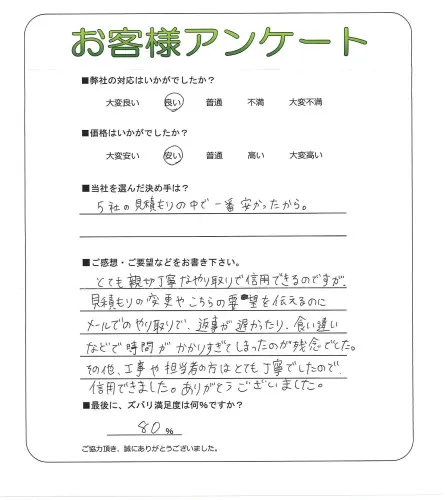 お客様アンケート
■弊社の対応はいかがでしたか？
大変良い 良い 普通 不満 大変不満
■価格はいかがでしたか？
大変安い 安い 普通 高い 大変高い
■当社を選んだ決め手は？
5社の見積もりの中で一番安かったから。
■ご感想・ご要望などをお書き下さい。
とても親切丁寧なやり取りで信用できるのですが、
見積もりの変更やこちらの要望を伝えるのに
メールでのやり取りで、返事が遅かったり、食い違い
などで時間がかかりすぎてしまったのが残念でした。
その他、工事や担当者の方はとても丁寧でしたので、
信用できました。ありがとうございました。
■最後に、ズバリ満足度は何%ですか？
80%
ご協力頂き、誠にありがとうございました。